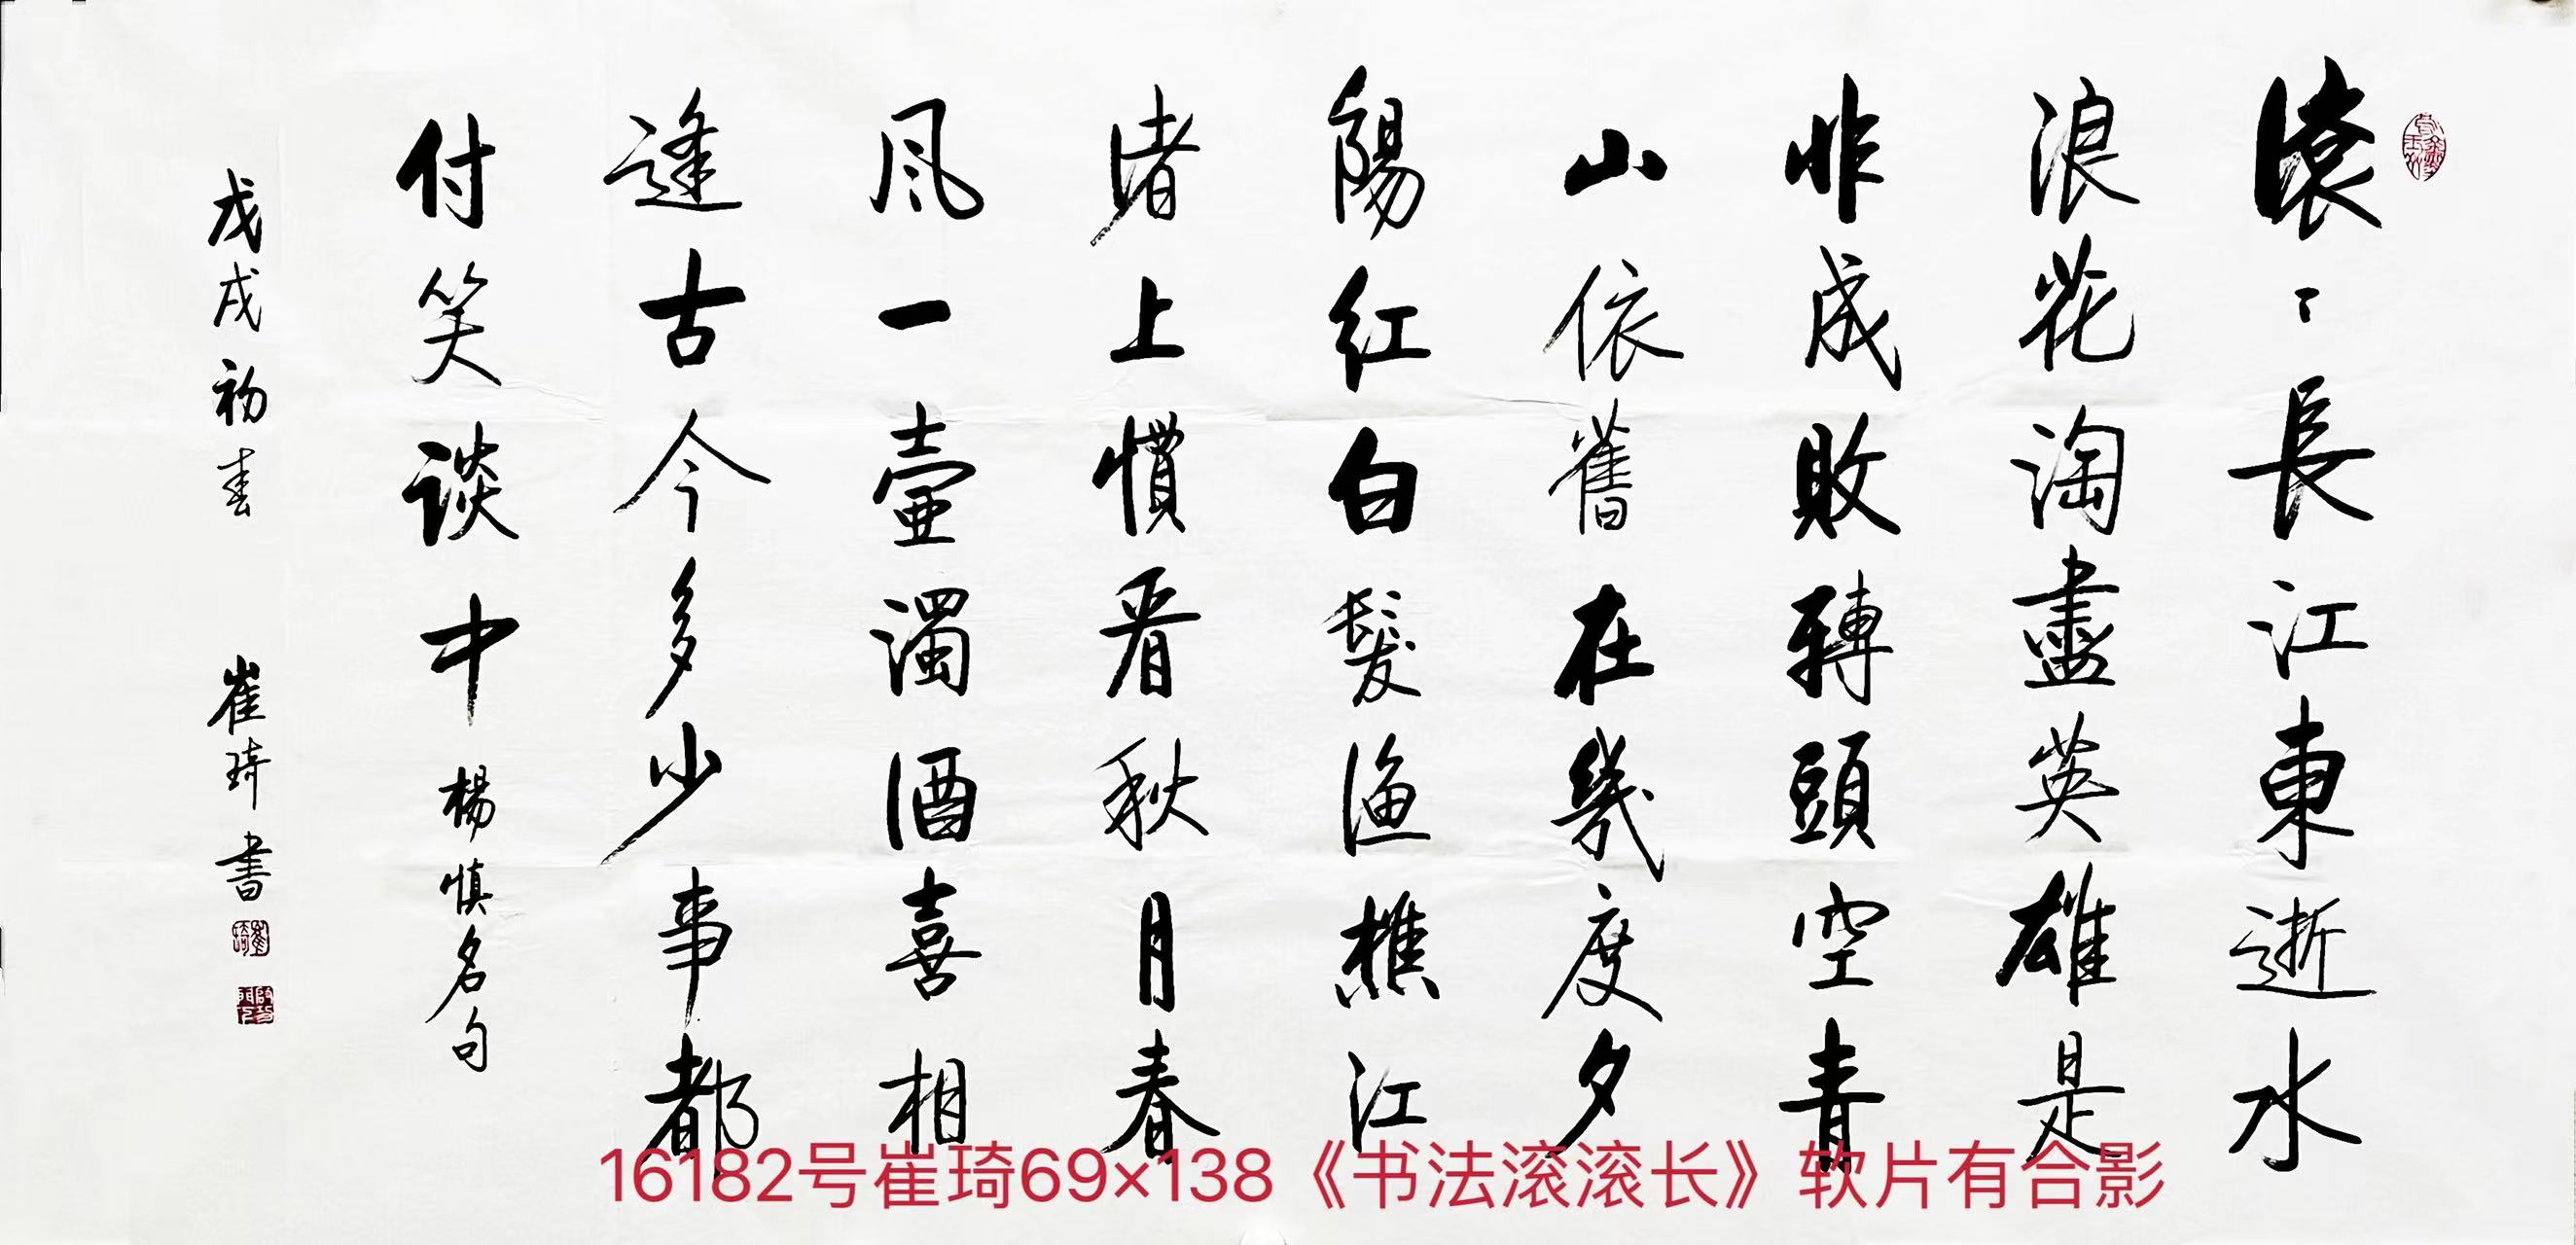 滚〻長江東逝水
浪花淘盡英雄是
非成敗轉頭空青
山依舊在幾度夕
陽红白髮漁樵江
渚上慣看秋月春
風一壺濁酒喜相
逢古今多少事都
付笑谈中 楊慎名句
戊戌初春 崔琦書
崔琦
16182号崔琦69×138《书法滚滚长》软片有合影